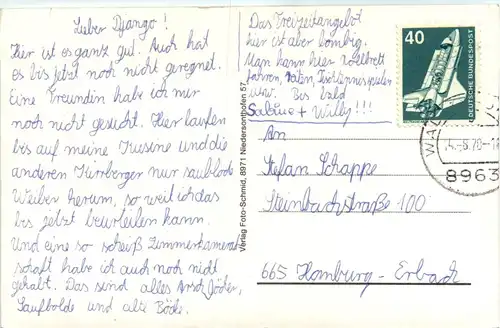 Lieber Django!
Hier ist es ganz gut. Auch hat
es bis jetzt noch nicht geregnet.
Eine Freundin habe ich mir
noch nicht gesucht. Hier laufen
bis auf meine Kusine und die
anderen Nürnberger nur saublöde
Weiber herum, so weit ich das
bis jetzt beurteilen kann.
Und eine so scheiß Zimmerkamerad-
schaft habe ich auch noch nicht
gehabt. Das sind alles Arschlöcher,
Saufbolde und alte Böcke.
Das Freizeitangebot
hier ist aber bombig.
Man kann hier
fahren, reiten, Tischtennisspielen
usw. Bis bald
Sabine + Willy!!!
An
Stefan Schappe
Steinbachstraße 100
665 Homburg-Erbach
Verlag Foto-Schmid, 8971 Niedersonthofen 57
40
DEUTSCHE BUNDESPOST
WAL
8963